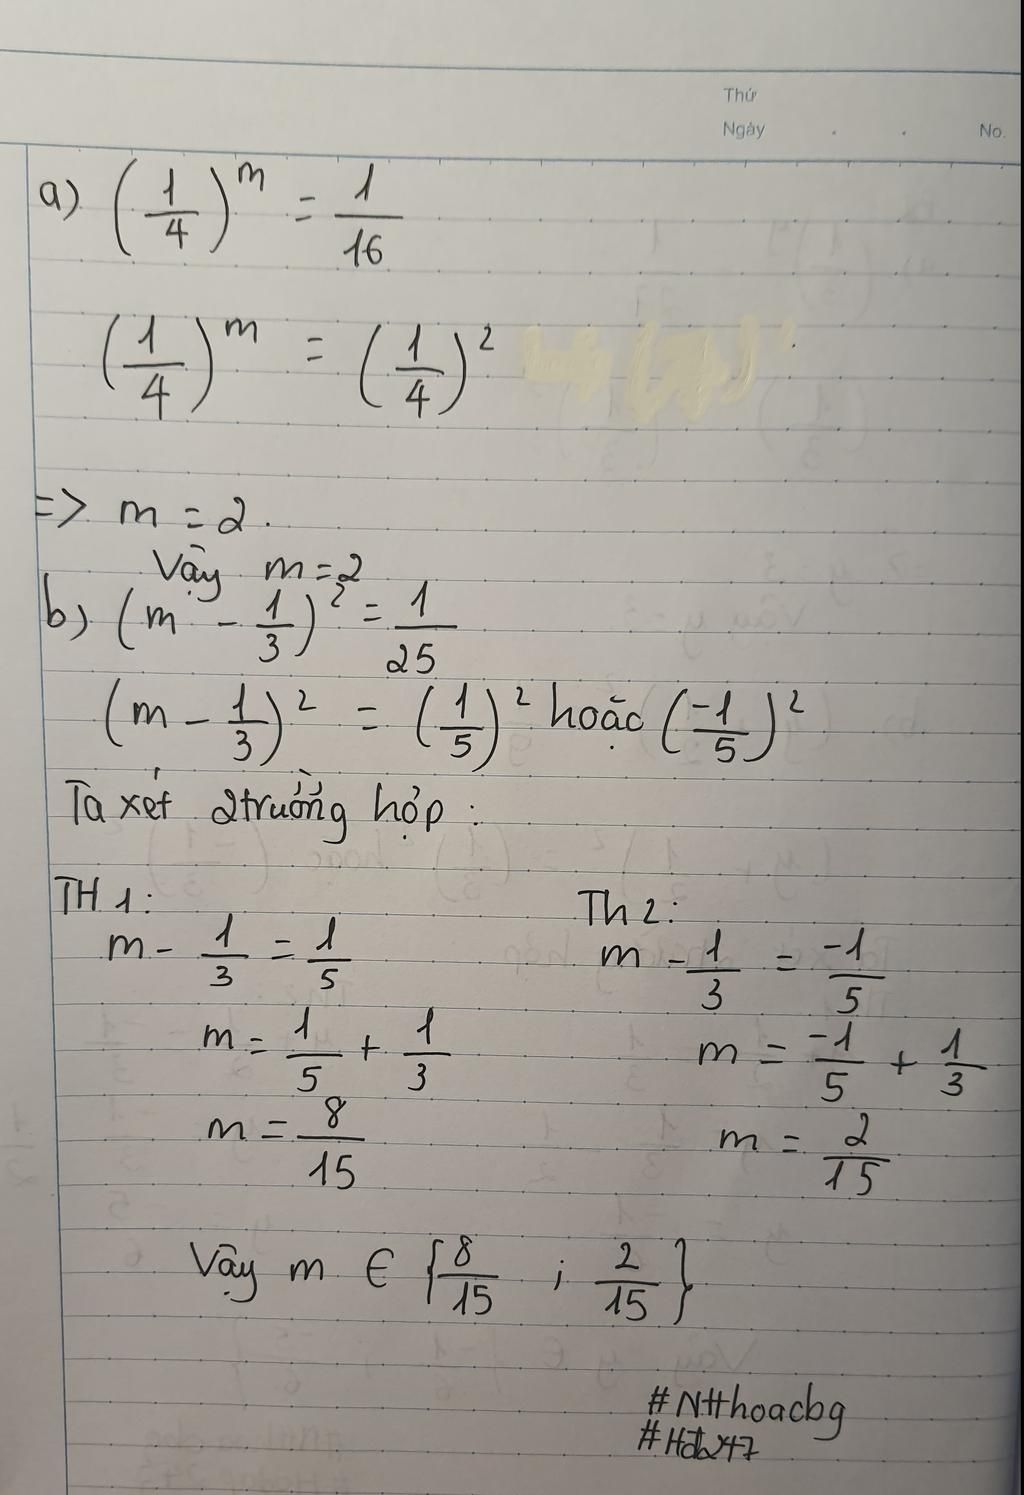 Thứ
Ngày . . No.
a) (1/4)^m = 1/16
(1/4)^m = (1/4)^2
=> m = 2.
Vậy m = 2
b) (m - 1/3)^2 = 1/25
(m - 1/3)^2 = (1/5)^2 hoặc (-1/5)^2
Ta xét 2 trường hợp :
TH 1:
m - 1/3 = 1/5
m = 1/5 + 1/3
m = 8/15
Th 2:
m - 1/3 = -1/5
m = -1/5 + 1/3
m = 2/15
Vậy m ∈ {8/15 ; 2/15}
#Ntthoacbg